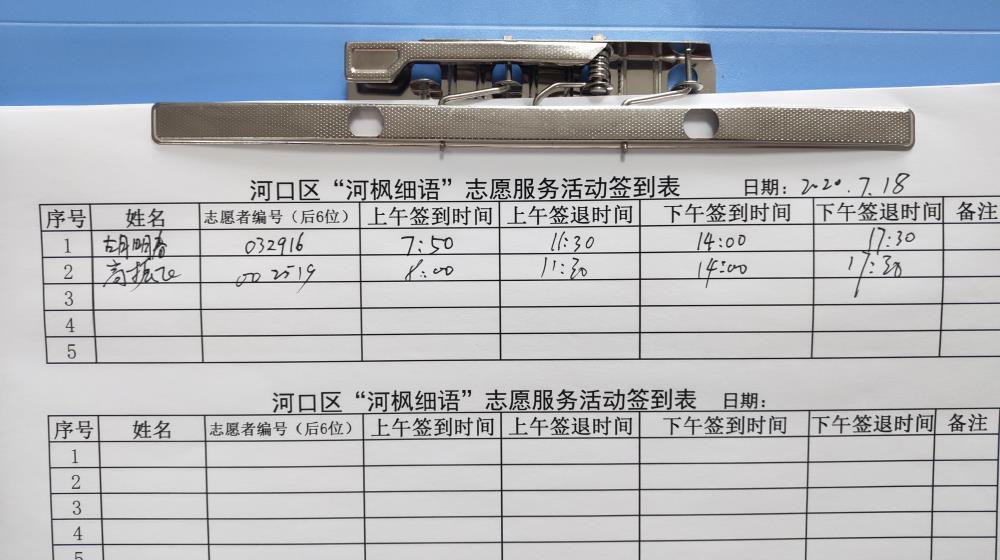 河口区“河枫细语”志愿服务活动签到表 日期:2020.7.18
序号 姓名 志愿者编号（后6位） 上午签到时间 上午签退时间 下午签到时间 下午签退时间 备注
1 胡明春 032916 7:50 11:30 14:00 17:30
2 高振飞 002519 8:00 11:30 14:00 17:30
3
4
5
河口区“河枫细语”志愿服务活动签到表 日期:
序号 姓名 志愿者编号（后6位） 上午签到时间 上午签退时间 下午签到时间 下午签退时间 备注
1
2
3
4
5